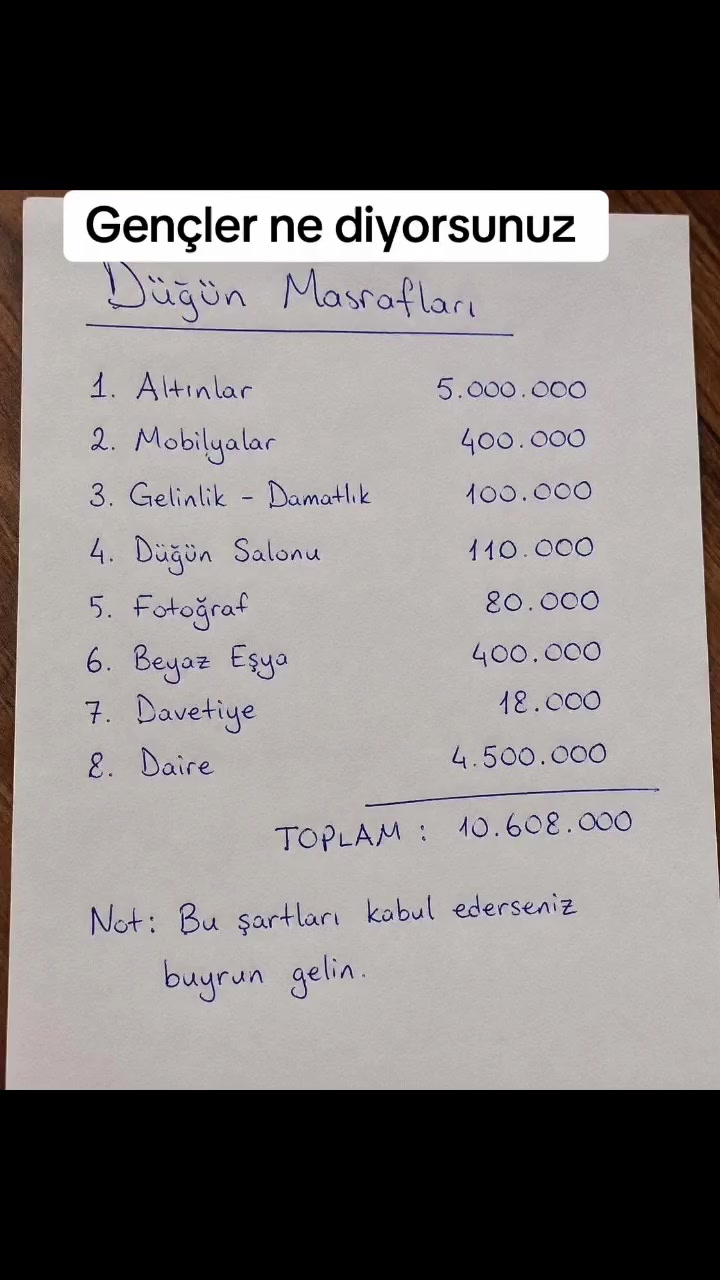 Gençler ne diyorsunuz
Düğün Masrafları
1. Altınlar 5.000.000
2. Mobilyalar 400.000
3. Gelinlik - Damatlık 100.000
4. Düğün Salonu 110.000
5. Fotoğraf 80.000
6. Beyaz Eşya 400.000
7. Davetiye 18.000
8. Daire 4.500.000
TOPLAM : 10.608.000
Not: Bu şartları kabul ederseniz
buyrun gelin.